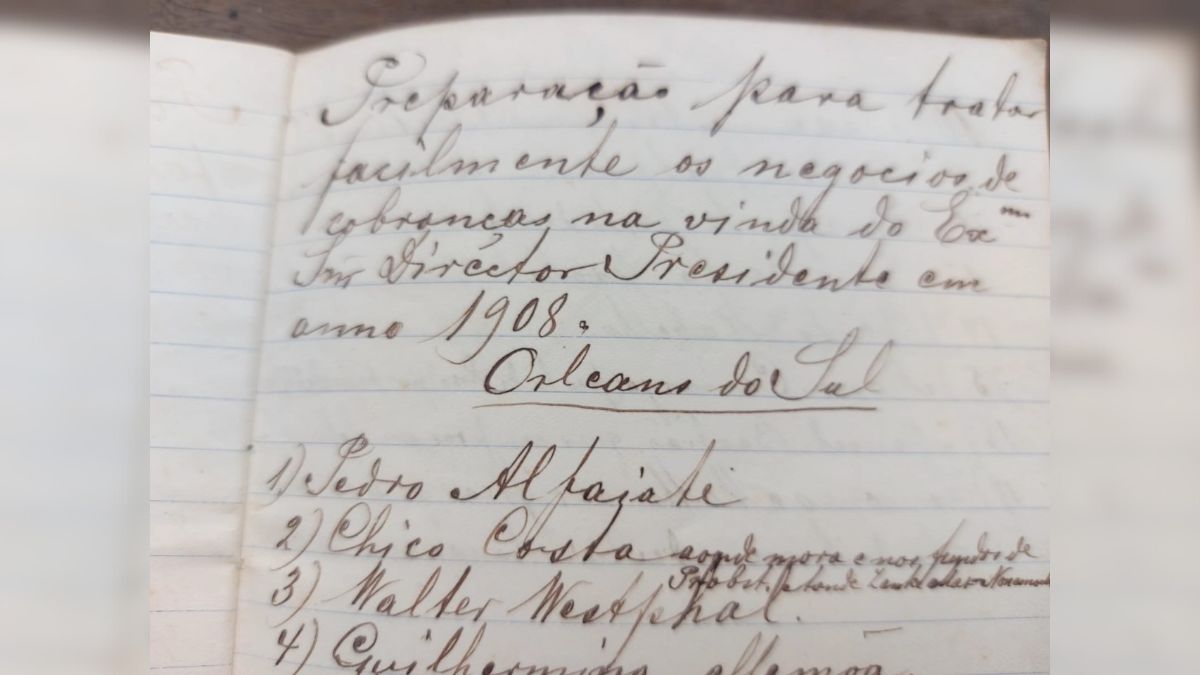 Preparação para tratar
facilmente os negocios de
cobranças na vinda do Exmo
Snr Director Presidente em
anno 1908.
Orleans do Sul
1) Pedro Alfaiate
2) Chico Costa aonde mora e nos fundos de
Probst.
3) Walter Westphal.
4) Guilhermina allemoa